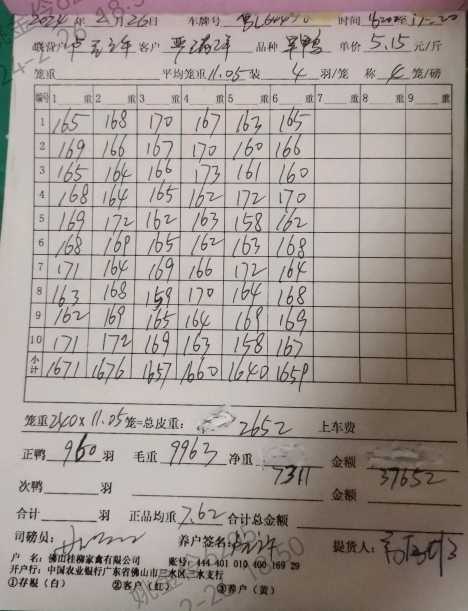 2024 年 2 月 26 日 车牌号 时间
联营户 客户 品种 单价 5.15 元/斤
笼重 平均笼重 11.05 装 4 羽/笼 称 4 笼/磅
编号 1 重 2 重 3 重 4 重 5 重 6 重 7 重 8 重 9 重
1 165 168 170 167 163 165
2 169 166 167 170 160 166
3 165 164 166 173 161 160
4 168 164 165 162 172 170
5 169 172 162 163 158 162
6 168 168 165 162 163 168
7 171 164 169 166 172 164
8 163 168 159 170 164 168
9 162 169 165 164 169 169
10 171 172 169 163 158 167
小计 1671 1676 1657 1660 1640 1659
笼重 240 x 11.05 笼=总皮重: 2652 上车费
正鸭 960 羽 毛重 9963 净重 7311 金额 37652
次鸭 羽 金额
合计 羽 正品均重 7.62 合计总金额
司磅员: 养户签名: 提货人:
户 名: 佛山桂柳家禽有限公司 账号: 444 401 010 400 169 29
开户行: 中国农业银行广东省佛山市三水区三水支行
①存根(白) ②客户(红) ③养户(黄)